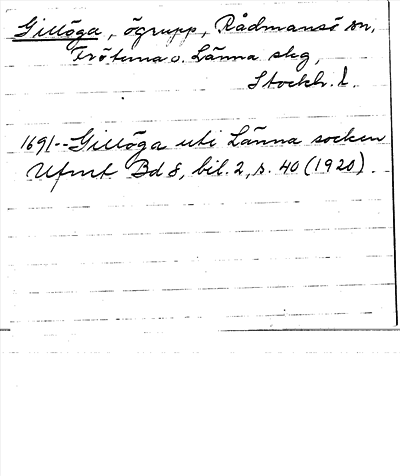 Gillöga, ögrupp, Rådmansö sn,
Frötuna o. Länna skg,
Stockh. l.
1691-- Gillöga uti Länna socken
Ufmt Bd 8, bil. 2, s. 40 (1920).